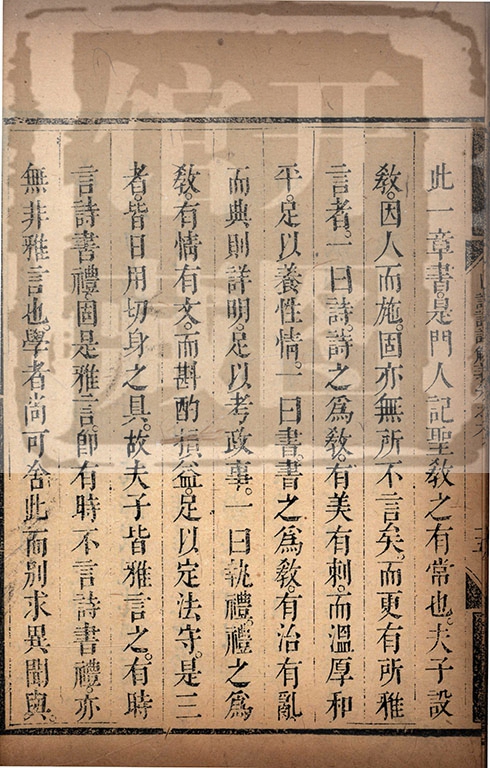 此一章書。是門人記聖敎之有常也。夫子設
敎。因人而施。固亦無所不言矣。而更有所雅
言者。一曰詩。詩之爲敎。有美有刺。而溫厚和
平。足以養性情。一曰書。書之爲敎。有治有亂
而典則詳明。足以考政事。一曰執禮。禮之爲
敎。有情有文。而斟酌損益。足以定法守。是三
者。皆日用切身之具。故夫子皆雅言之。有時
言詩書禮。固是雅言。卽有時不言詩書禮。亦
無非雅言也。學者尚可舍此而别求異聞與。